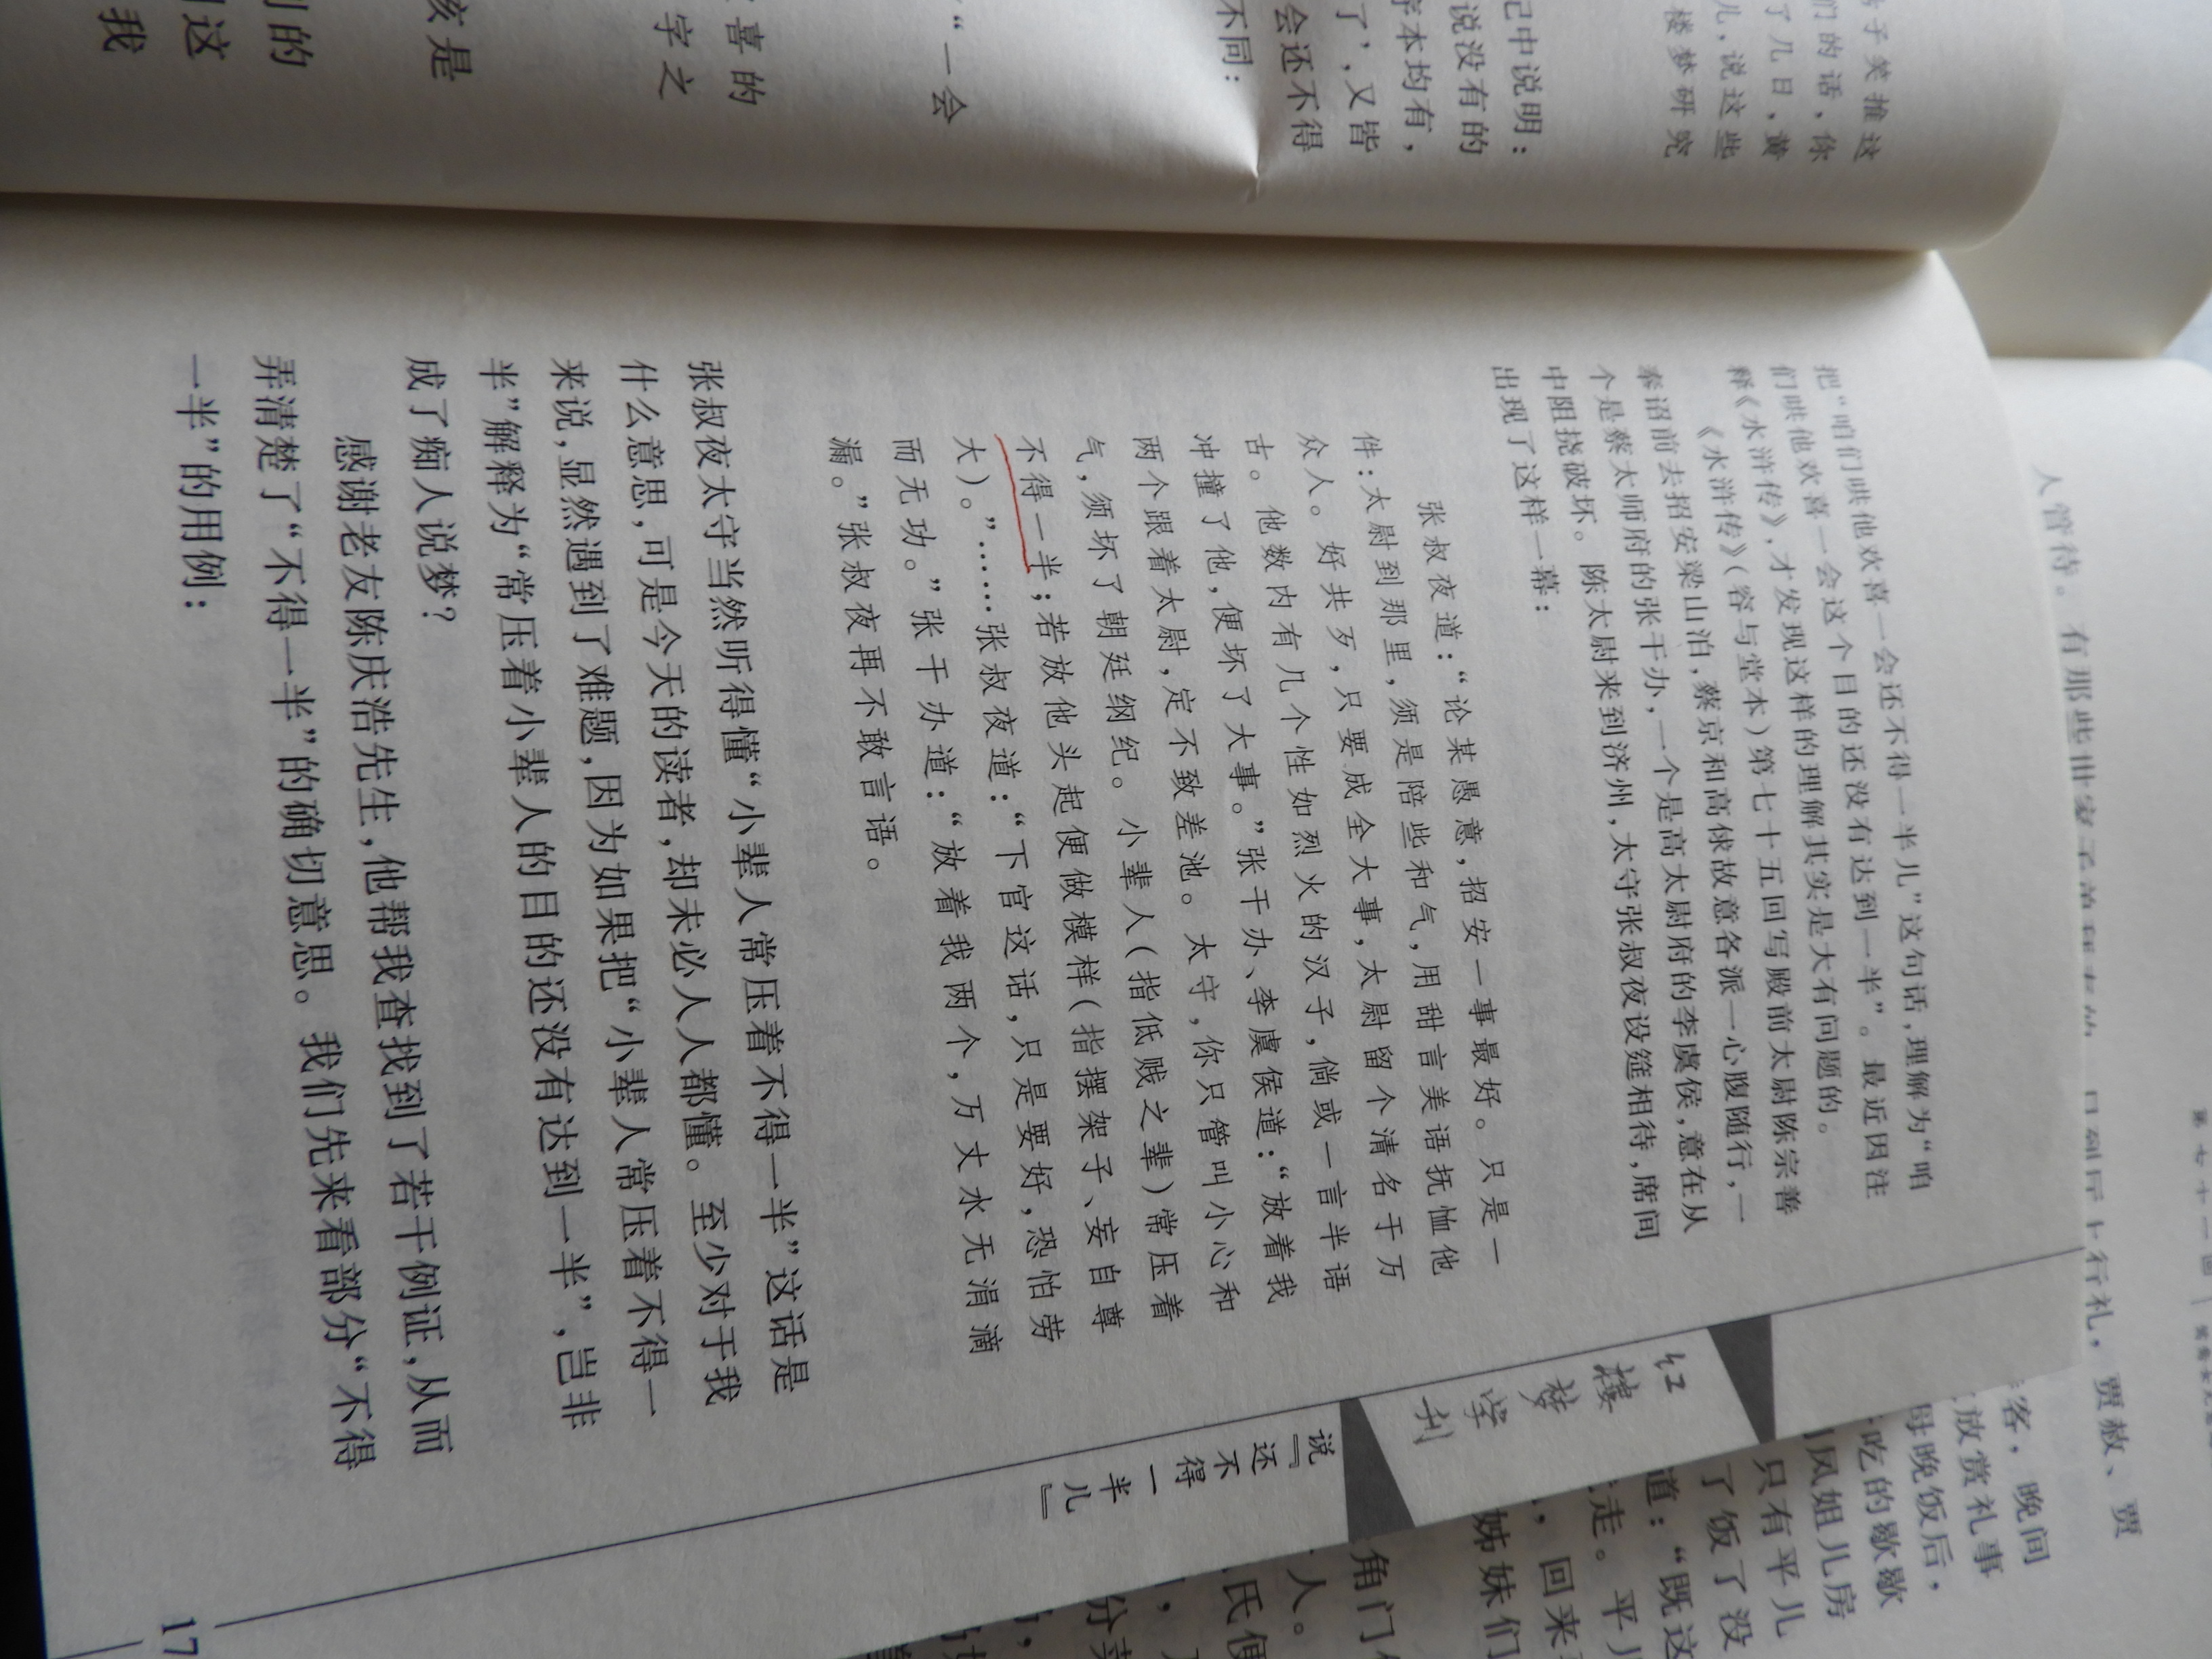 把“咱们哄他欢喜一会还不得一半儿”这句话,理解为“咱
们哄他欢喜一会这个目的还没有达到一半”。最近因注
释《水浒传》,才发现这样的理解其实是大有问题的。
《水浒传》(容与堂本)第七十五回写殿前太尉陈宗善
奉诏前去招安梁山泊,蔡京和高俅故意各派一心腹随行,一
个是蔡太师府的张干办,一个是高太尉府的李虞侯,意在从
中阻挠破坏。陈太尉来到济州,太守张叔夜设筵相待,席间
出现了这样一幕:
张叔夜道:“论某愚意,招安一事最好。只是一
件:太尉到那里,须是陪些和气,用甜言美语抚恤他
众人。好共歹,只要成全大事,太尉留个清名于万
古。他数内有几个性如烈火的汉子,倘或一言半语
冲撞了他,便坏了大事。”张干办、李虞侯道:“放着我
两个跟着太尉,定不致差池。太守,你只管叫小心和
气,须坏了朝廷纲纪。小辈人(指低贱之辈)常压着
不得一半;若放他头起便做模样(指摆架子、妄自尊
大)。”……张叔夜道:“下官这话,只是要好,恐怕劳
而无功。”张干办道:“放着我两个,万丈水无涓滴
漏。”张叔夜再不敢言语。
张叔夜太守当然听得懂“小辈人常压着不得一半”这话是
什么意思,可是今天的读者,却未必人人都懂。至少对于我
来说,显然遇到了难题,因为如果把“小辈人常压着不得一
半”解释为“常压着小辈人的目的还没有达到一半”,岂非
成了痴人说梦?
感谢老友陈庆浩先生,他帮我查找到了若干例证,从而
弄清楚了“不得一半”的确切意思。我们先来看部分“不得
一半”的用例:
红楼梦学刊
说『还不得一半儿』
17
子笑推这
们的话,你
了几日,黄
儿,说这些
楼梦研究
记中说明:
说没有的
序本均有,
了’,又皆
会还不得
不同:
“一会
喜的
字之
亥是
的
这
我
人管待。有那些世家子弟
上行礼,贾赦、贾
客,晚间
放赏礼事
母晚饭后,
吃的歇歇
凤姐儿房
只有平儿
了饭了没
道:“既这
走。平儿
,回来
姊妹们
角门
人。
氏便
分菜